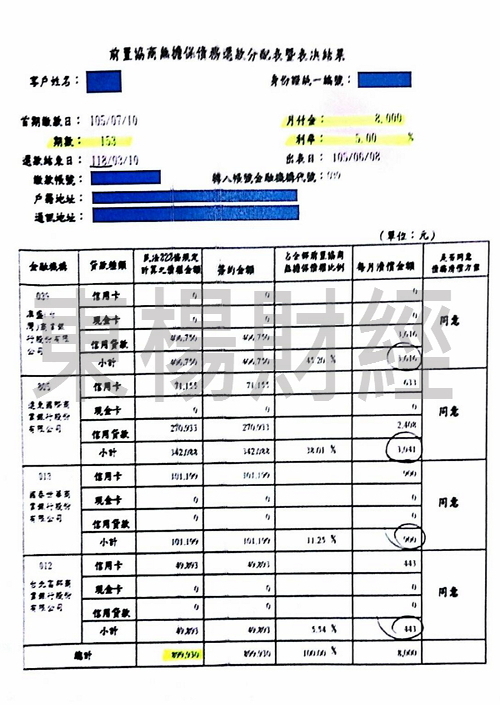 前置協商無擔保債務還款分配表暨表決結果
客戶姓名：
身份證統一編號：
首期繳款日：105/07/10
月付金：8,000
期數：153
利率：5.00 %
還款結束日：118/03/10
出表日：105/06/08
繳款帳號：
轉入帳號金融機構代號：039
戶籍地址：
通訊地址：
（單位：元）
金融機構 貸款種類 民法323條規定計算之債權金額 簽約金額 占全部前置協商無擔保債權比例 每月清償金額 是否同意債務清償方案
039 澳盛(台灣)商業銀行股份有限公司
信用卡 0 0 0
現金卡 0 0 0
信用貸款 406,750 406,750 3,616
小計 406,750 406,750 45.20 % 3,616
同意
805 遠東國際商業銀行股份有限公司
信用卡 71,155 71,155 633
現金卡 0 0 0
信用貸款 270,933 270,933 2,408
小計 342,088 342,088 38.01 % 3,041
同意
013 國泰世華商業銀行股份有限公司
信用卡 101,199 101,199 900
現金卡 0 0 0
信用貸款 0 0 0
小計 101,199 101,199 11.25 % 900
同意
012 台北富邦商業銀行股份有限公司
信用卡 49,893 49,893 443
現金卡 0 0 0
信用貸款 0 0 0
小計 49,893 49,893 5.54 % 443
同意
總計 899,930 899,930 100.00 % 8,000
東楊財經